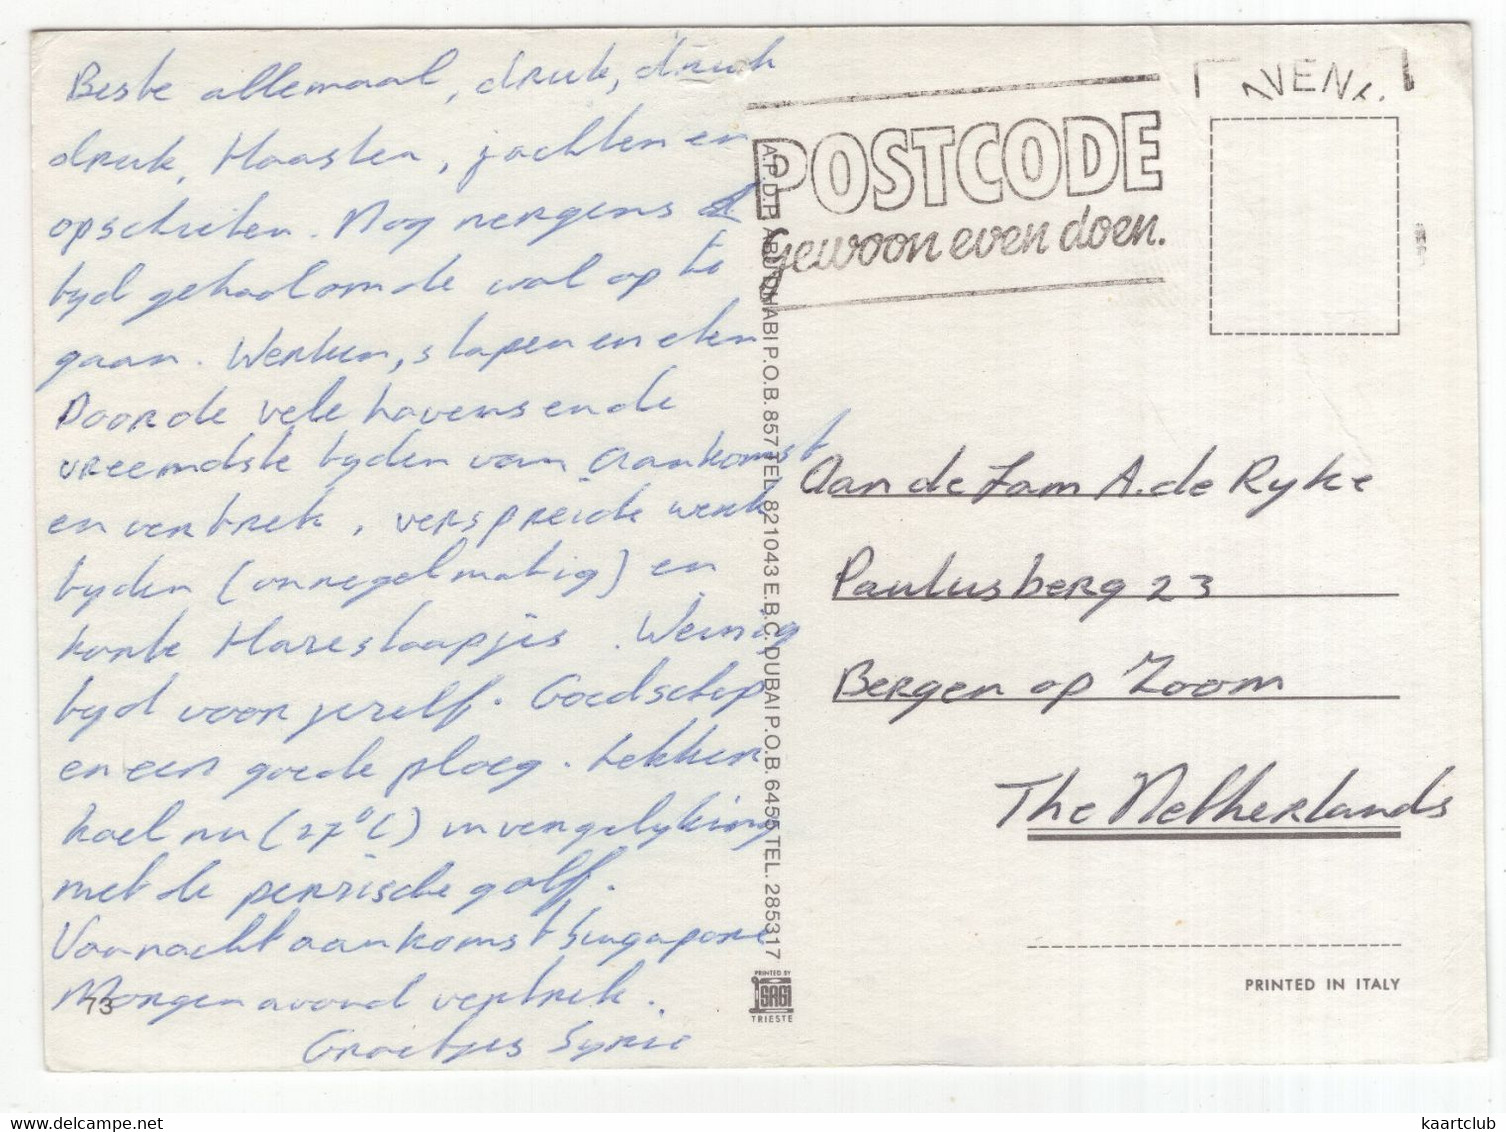 Beste allemaal, druk, druk
druk, Haasten, jachten en
opschieten. Nog nergens de
tyd gehad om de wal op te
gaan. Werken, slapen en eten
Door de vele havens en de
vreemdste tyden van aankomst
en vertrek, verspreide werk
tyden (onregelmatig) en
korte Hazeslaapjes. Weinig
tyd voor jezelf. Goed schip
en een goede ploeg. Lekker
koel nu (27°C) in vergelyking
met de perzische golf.
Vannacht aankomst Singapore
Morgen avond vertrek.
Groetjes
73
A.P.D.P. ABU DHABI P.O.B. 857 TEL. 821043 E.B.C. DUBAI P.O.B. 6455 TEL. 285317
PRINTED BY
SAGI
TRIESTE
POSTCODE
gewoon even doen.
Aan de Fam A. de Ryke
Paulusberg 23
Bergen op Zoom
The Netherlands
PRINTED IN ITALY
kaartclub